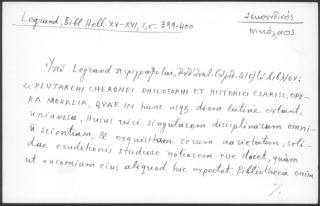 Legrand, Bibl. Hell. XV-XVI, 2, σ. 399-400
Σεκουνδινός
Νικόλαος
Ὑπὸ Legrand περιγράφεται,
« PLUTARCHI CHERONEI PHILOSOPHI ET HISTORICI CLARISS, OPE-
RA MORALIA, QVAE IN hunc usqз diem latine extant,
universa. Huius vici singularem disciplinarum omni-
ū scientiam, & exquisitam rerum varietatem, soli-
dae eruditionis studioso notiorem esse docet, quàm
ut encomium eius aliquod hic expectet. Bibliotheca enim